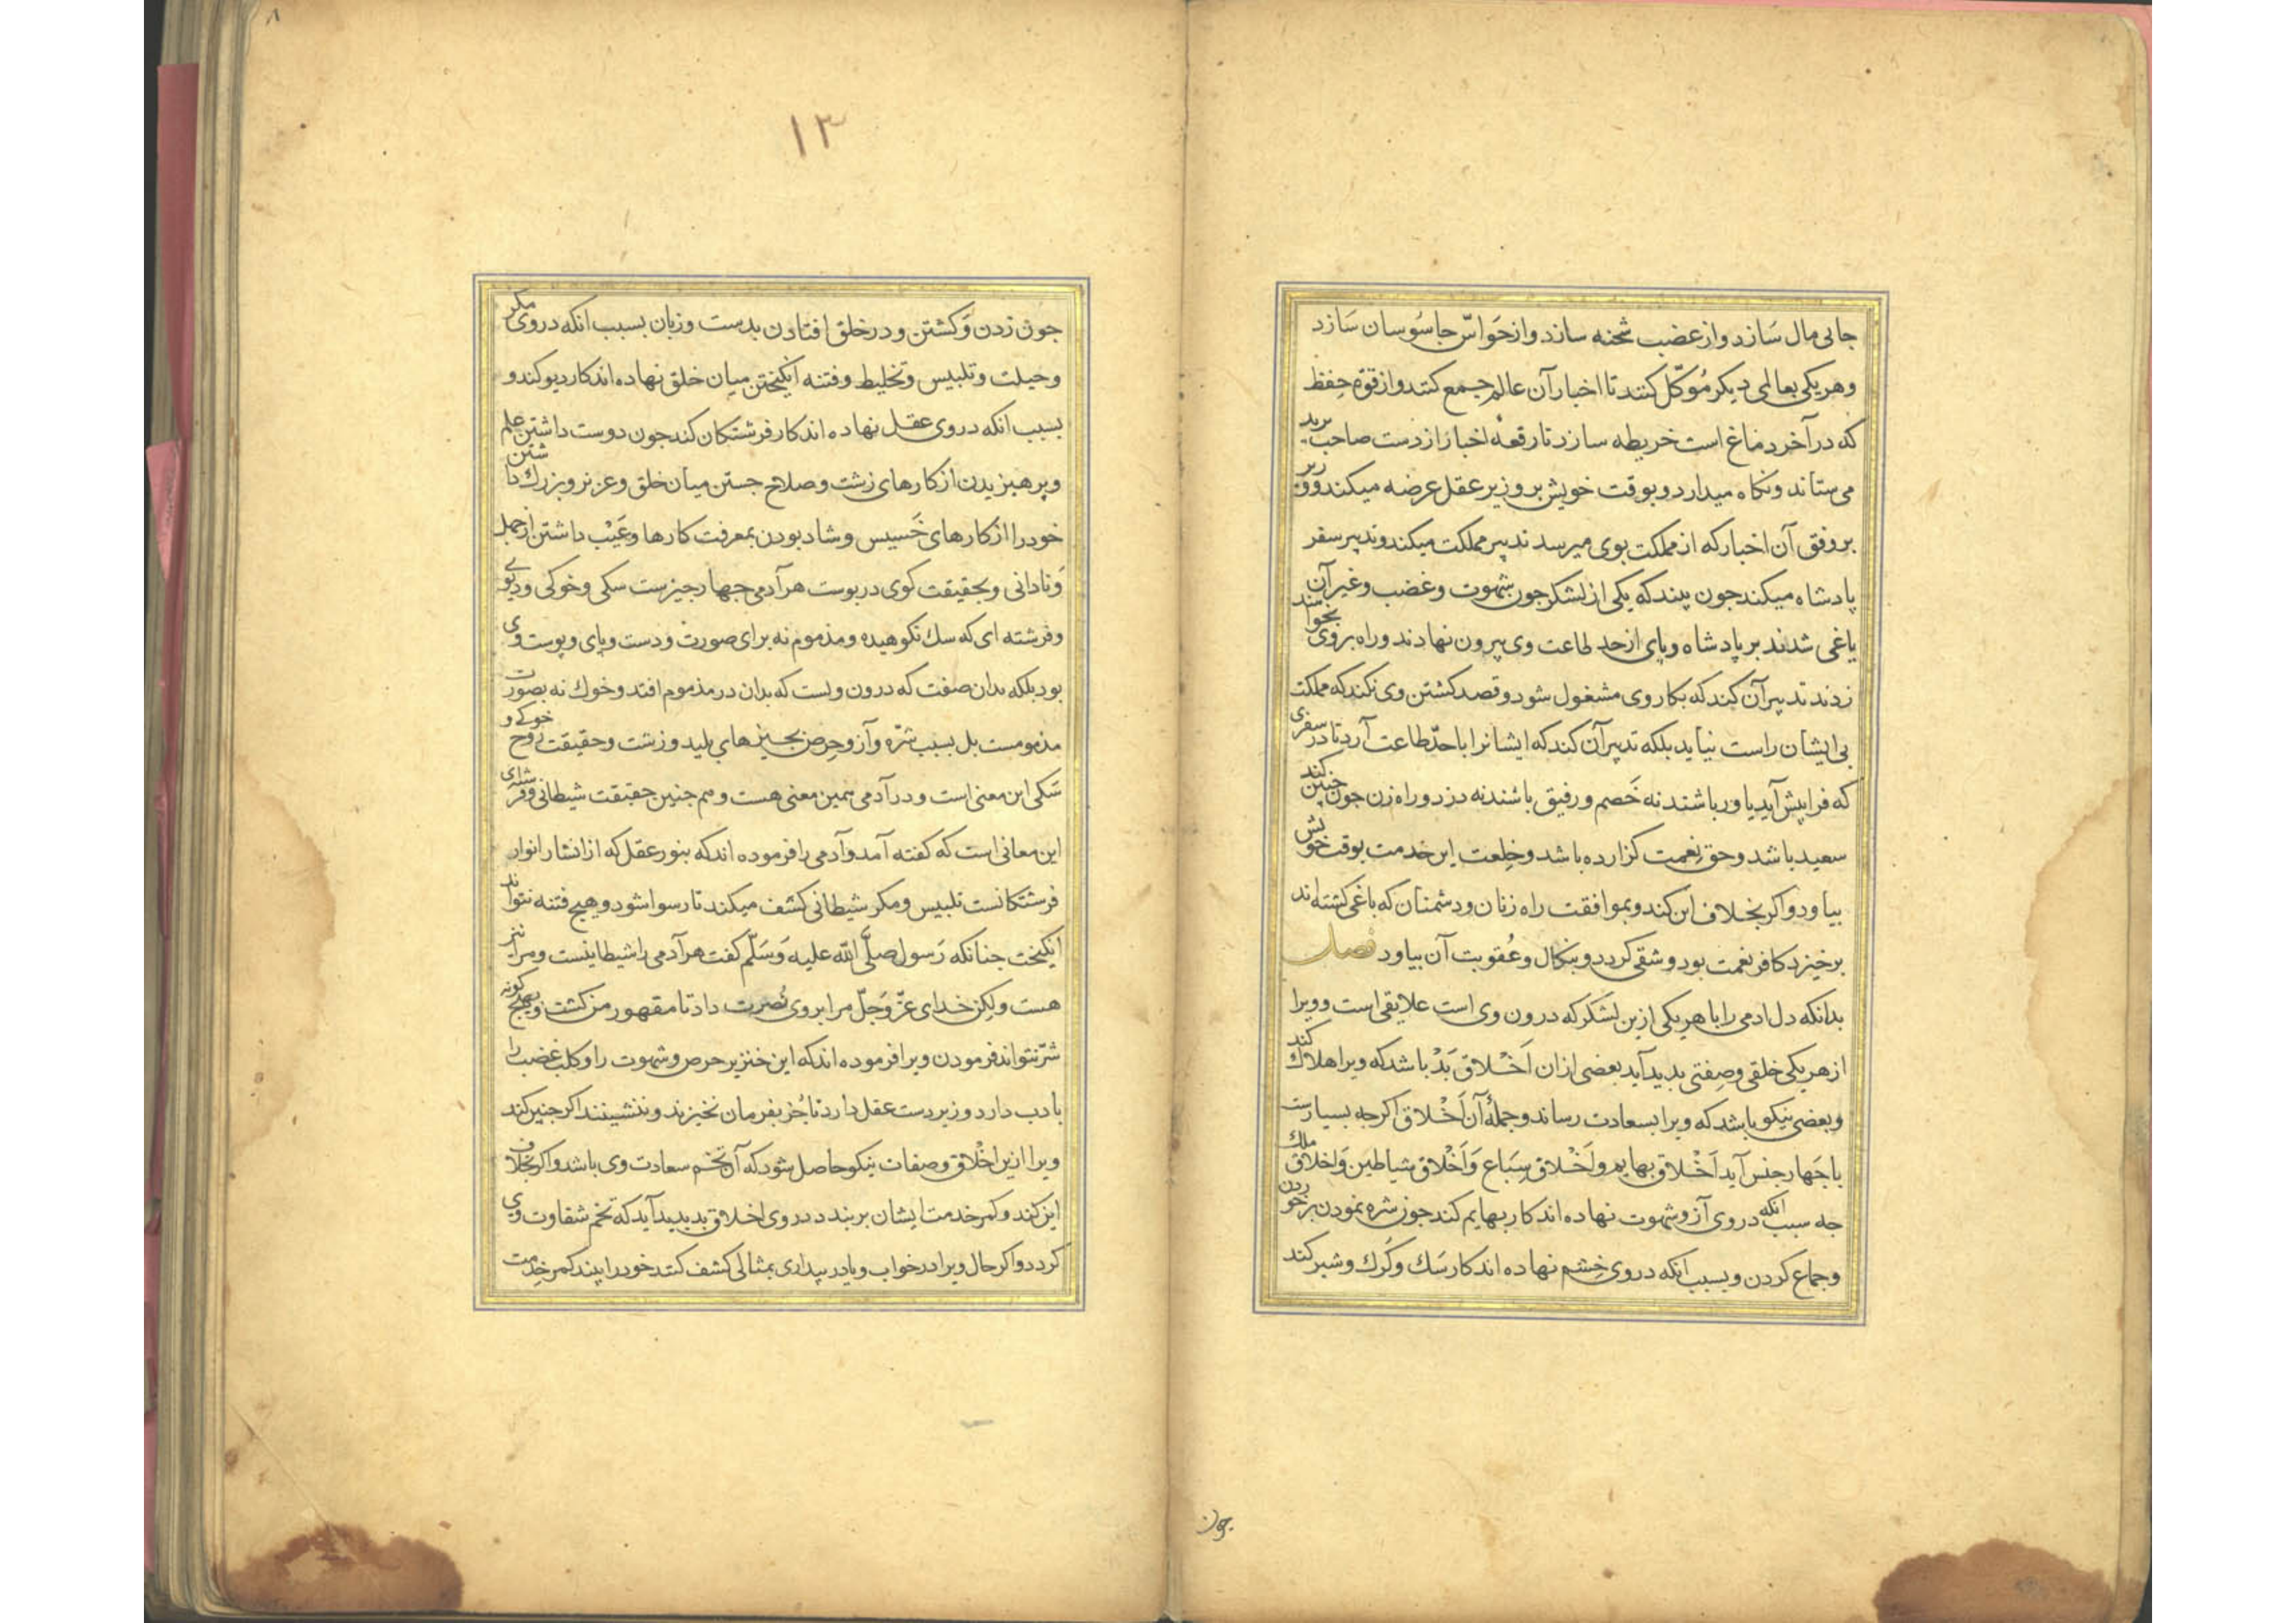 جابی مال سَازد واز غضب شحنه سازد واز حَواسّ جاسُوسان سَازد
وهریکی بعالمی دیکر مُوَکّل کنند تا اخبار آن عالم جمع کنند واز قوّة حِفظ
که در آخر دماغ است خریطه سازد تا رقعهٔ اخبار از دست صاحب برید
می ستاند ونکاه میدارد وبوقت خویش بر وزیر عقل عرضه میکند ووزیر
بر وفق آن اخبار که از مملکت بوی میرسد تدبیر مملکت میکند وتدبیر سفر
پادشاه میکند جون بیند که یکی از لشکر جون شهوت وغضب وغیر آن
یاغی شدند بر پادشاه وپای از حد طاعت وی بیرون نهادند وراه بر وی بخواهند
زدند تدبیر آن کند که بکار وی مشغول شود وقصد کشتن وی نکند که مملکت
بی ایشان راست نیاید بلکه تدبیر آن کند که ایشانرا باحدّ طاعت آرد تا در سفری
که فرا پیش آید یاور باشند نه خَصم ورفیق باشند نه دزد وراه زن جون جنین کند
سعید باشد وحق نِعمت کزارده باشد وخِلعت این خدمت بوقت خویش
بیاود واکر بخلاف این کند وبموافقت راه زنان ودشمنان که یاغی کشته اند
برخیزد کافر نعمت بود وشقی کردد ونکال وعُقوبت آن بیاود فصل
بدانکه دل ادمی را با هر یکی ازین لشکر که درون وی است علایقی است وویرا
از هریکی خلقی وصِفتی بدید آید بعضی ازان اَخْلاق بَدْ باشد که ویرا هلاک کند
وبعضی نیکو باشد که ویرا بسعادت رساند وجملهٔ آن اَخْلاق اکرجه بسیارست
باجَهار جنس آید اَخْلاق بهایم واَخْلاق سِبَاع وَاَخْلاق شیاطین وَاخلاق ملک
جه سبب انکه در وی آز وشهوت نهاده اند کار بهایم کند جون شره نمودن بر خوردن
وجماع کردن وبسبب انکه در وی خِشم نهاده اند کار سَک وکُرک وشیر کند
جون
۱۳
۸
جون زدن وَکشتن ودر خلق افتادن بدست وزبان بسبب انکه در وی مکر
وحیلت وتلبیس وتخلیط وفتنه انکیختن میان خلق نهاده اند کار دیو کند و
بسبب انکه در وی عقل نهاده اند کار فرشتکان کند جون دوست داشتن علم
وپرهیزیدن از کارهای زشت وصلاح جستن میان خلق وعزیز وبزرک داشتن
خود را از کارهای خَسیس وشاد بودن بمعرفت کارها وعَیْب داشتن از جهل
وَنادانی وبحقیقت کوی در پوست هر آدمی جهار جیزست سکی وخوکی ودیوی
وفرشته ای که سک نکوهیده ومذموم نه برای صورت ودست وپای وپوست وی
بود بلکه بدان صفت که درون ویست که بدان در مذموم افتد وخوک نه بصورت
مذمومست بل بسبب شرّه وآز وحِرص بجیزهای پلید وزشت وحقیقت روح خوکی و
سَکی این معنی است ودر آدمی همین معنی هست وهم جنین حقیقت شیطانی وفرشتای
این معانی است که کفته آمد وآدمی را فرموده اند که بنور عقل که از انشار انوار
فرشتکانست تلبیس ومکر شیطانی کشف میکند تا رسوا شود وهیج فتنه نتواند
انکیخت جنانکه رَسول صلّی الله علیه وَسَلّم کفت هر آدمی را شیطانیست ومرا نیز
هست ولکن خدای عزّ وَجَلّ مرا بر وی نُصرت داد تا مقهور من کشت وبهیج کونه
شرّ نتواند فرمودن ویرا فرموده اند که این خنزیر حرص وشهوت را وکلب غضب را
با دب دارد وزبر دست عقل دارد تا جُز بفرمان نخیزند وننشینند اکر جنین کند
ویرا ازین اخْلاق وصفات نیکو حاصل شود که آن تخم سعادت وی باشد واکر بخلاف
این کند وکمر خدمت ایشان بر بندد در وی اخلاق بد بدید آید که تخم شقاوت وی
کردد واکر حال ویرا در خواب ویا در بیداری بمثالی کشف کنند خود را بیند کمر خِدمت